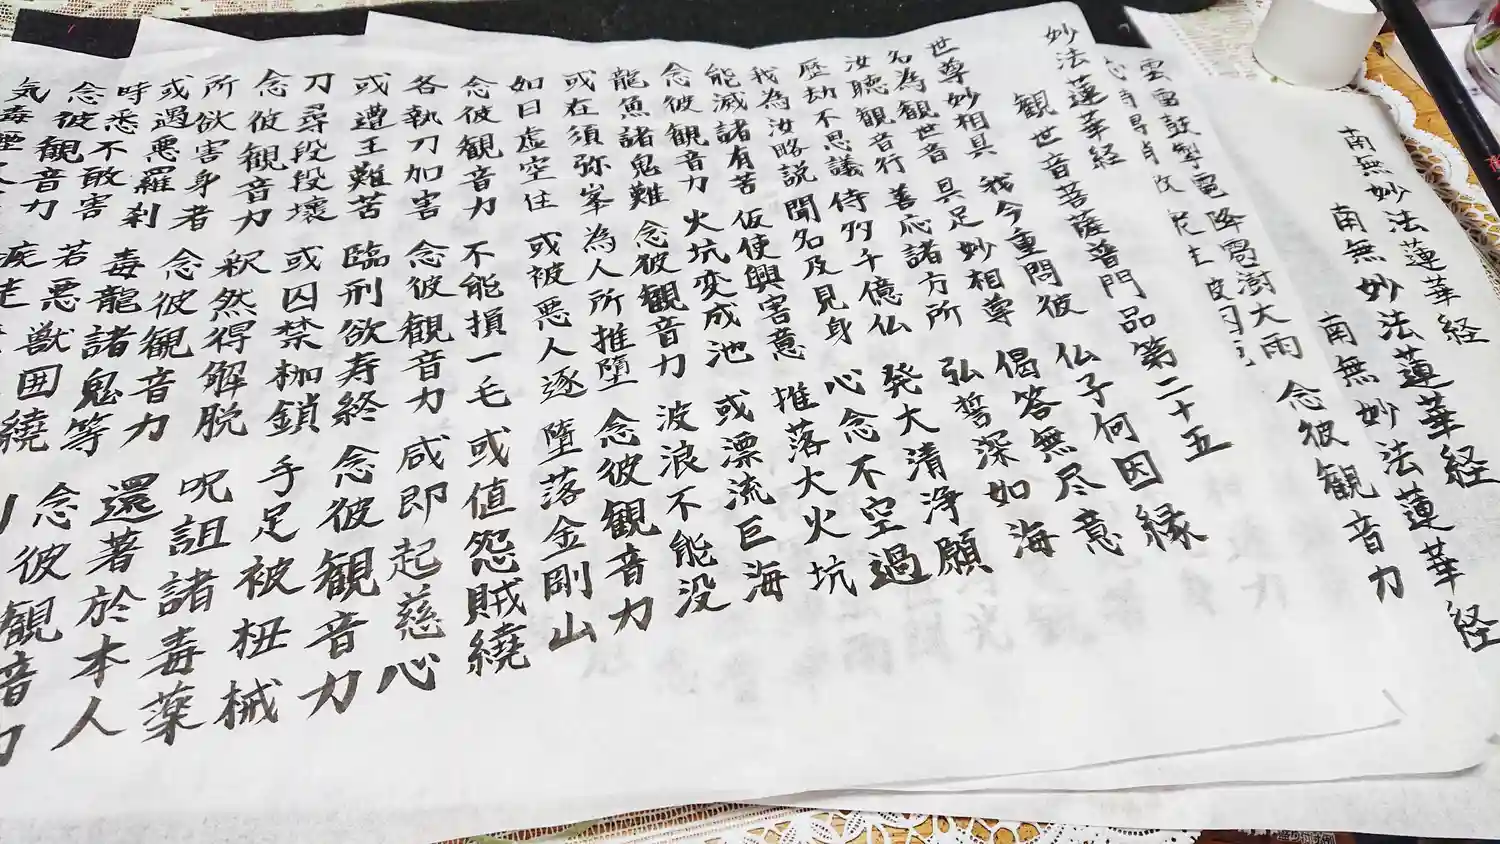 南無妙法蓮華経
南無妙法蓮華経
南無妙法蓮華経
念彼観音力
雲雷鼓掣電 降雹澍大雨
妙法蓮華経
観世音菩薩普門品第二十五
世尊妙相具 我今重問彼 仏子何因縁
名為観世音 具足妙相尊 偈答無尽意
汝聴観音行 善応諸方所 弘誓深如海
歴劫不思議 侍多千億仏 発大清浄願
我為汝略説 聞名及見身 心念不空過
能滅諸有苦 仮使興害意 推落大火坑
念彼観音力 火坑変成池 或漂流巨海
龍魚諸鬼難 念彼観音力 波浪不能没
或在須弥峯 為人所推墮 念彼観音力
如日虚空住 或被悪人逐 墮落金剛山
念彼観音力 不能損一毛 或値怨賊繞
各執刀加害 念彼観音力 咸即起慈心
或遭王難苦 臨刑欲寿終 念彼観音力
刀尋段段壊 或囚禁枷鎖 手足被杻械
念彼観音力 釈然得解脱 呪詛諸毒薬
所欲害身者 念彼観音力 還著於本人
或遇悪羅刹 毒龍諸鬼等 念彼観音力
時悉不敢害 若悪獣囲繞
念彼観音力 疾走
気毒煙